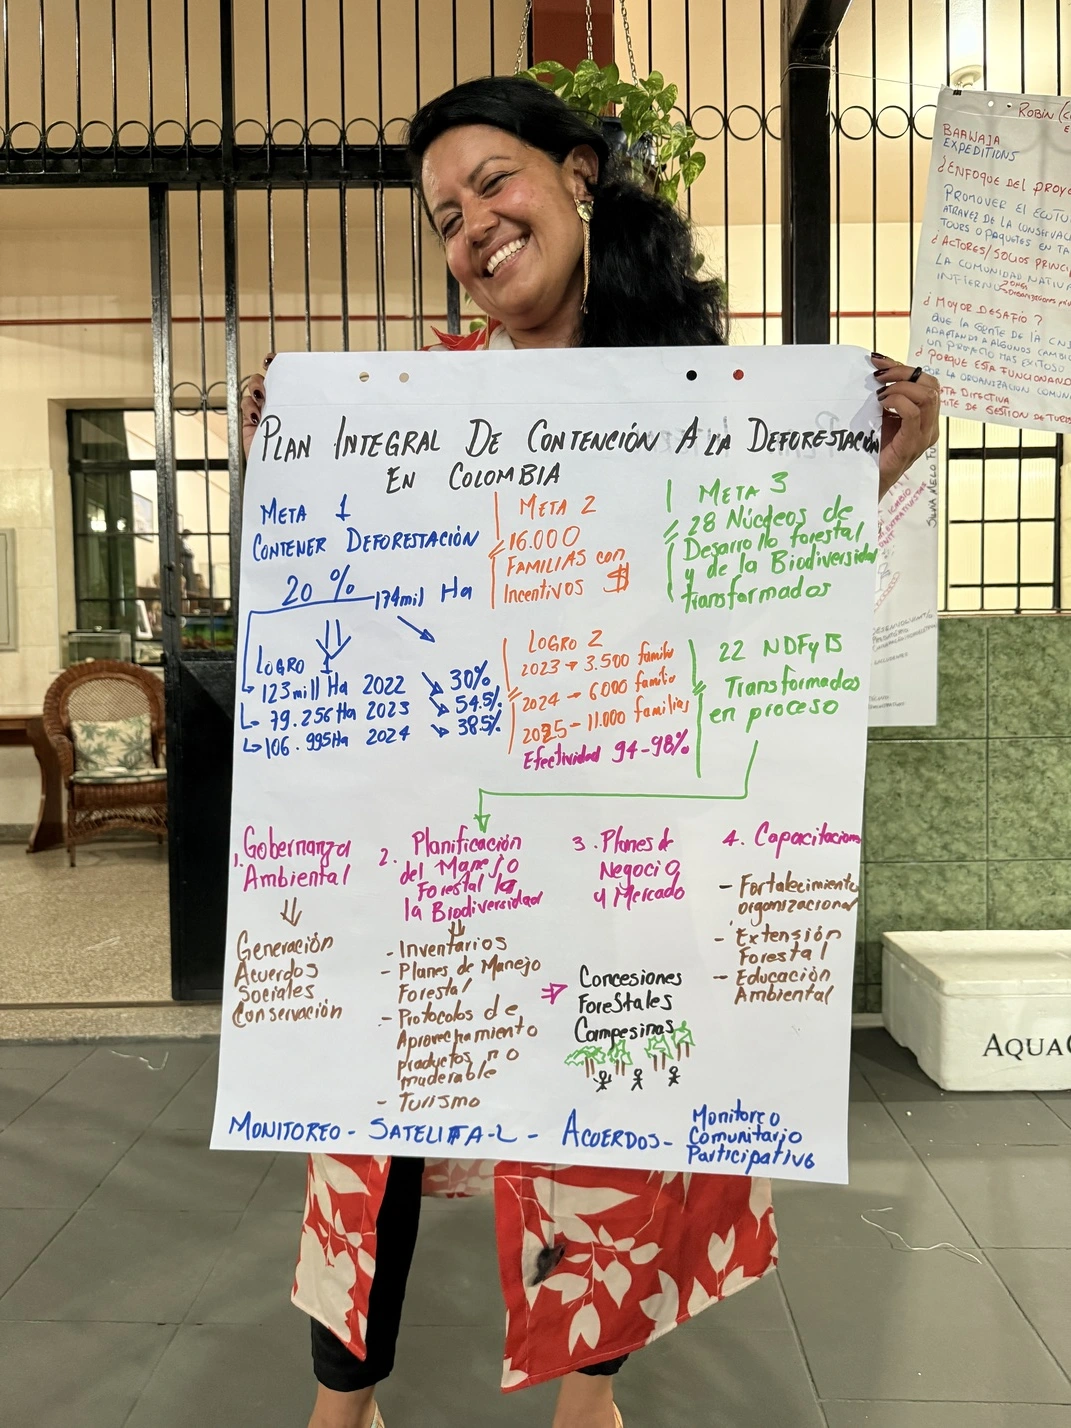 PLAN INTEGRAL DE CONTENCIÓN A LA DEFORESTACIÓN
EN COLOMBIA
META 1
CONTENER DEFORESTACIÓN
20 %
174mil Ha
LOGRO 1
123mill Ha 2022 30%
79.256Ha 2023 54.5%
106.995Ha 2024 38.5%
META 2
16.000
FAMILIAS con
Incentivos $
LOGRO 2
2023 → 3.500 familia
2024 → 6000 familia
2025 - 11.000 familias
Efectividad 94-98%
META 3
28 Núcleos de
Desarrollo forestal
y de la Biodiversidad
transformados
22 NDFyB
Transformados
en proceso
1. Gobernanza
Ambiental
Generación
Acuerdos
Sociales
Conservación
2. Planificación
del Manejo
Forestal
la Biodiversidad
- Inventarios
- Planes de Manejo
Forestal
- Protocolos de
Aprovechamiento
productos no
maderable
- Turismo
3. Planes de
Negocio
y Mercado
Concesiones
Forestales
Campesinas
4. Capacitaciones
- Fortalecimiento
organizacional
- Extensión
Forestal
- Educación
Ambiental
MONITOREO - SATELITAL - ACUERDOS - Monitoreo
Comunitario
Participativo
ROBIN
BAAWAJA
EXPEDITIONS
¿ENFOQUE DEL PROYE
PROMOVER EL ECOTU
ATRAVEZ DE LA CONSERVAC
TOURS O PAQUETES EN TA
¿ACTORES/SOCIOS PRINCI
LA COMUNIDAD NATIVA
¿MAYOR DESAFIO?
QUE LA GENTE DE LA
ADAPTANDO A ALGUNOS CAMBI
UN PROYECTO MAS EXITOSO
¿PORQUE ESTA FUNCIONAND
POR LA ORGANIZACION COMUN
TA DIRECTIVA
MITE DE GESTION DE TURIS
AQUA